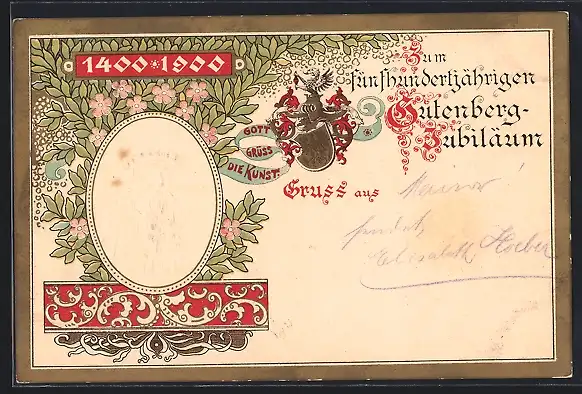 1400 * 1900
Zum
fünfhundertjährigen
Gutenberg-
Jubiläum
GOTT
GRÜSS
DIE KUNST.
Gruss aus Mainz
sendet
Elisabeth